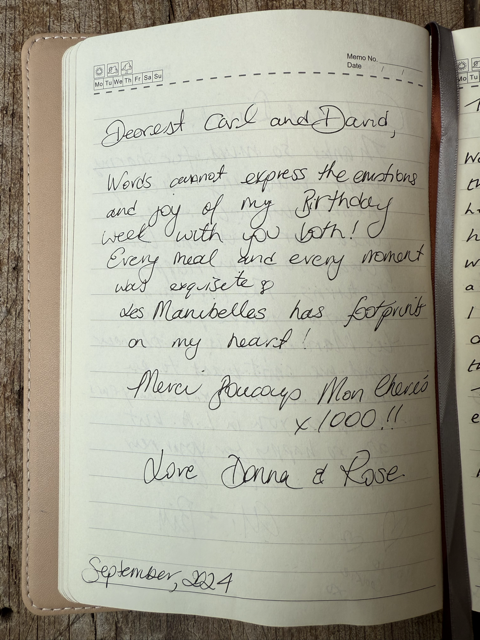 Memo No.
Date / /
Mo Tu We Th Fr Sa Su
Dearest Carl and David,
Words cannot express the emotions
and joy of my Birthday
week with you both!
Every meal and every moment
was exquisite &
Les Manibelles has footprints
on my heart!
Merci Boucoups Mon Cheries
x 1000!!
Love Donna & Rose
September, 2024
Mo Tu